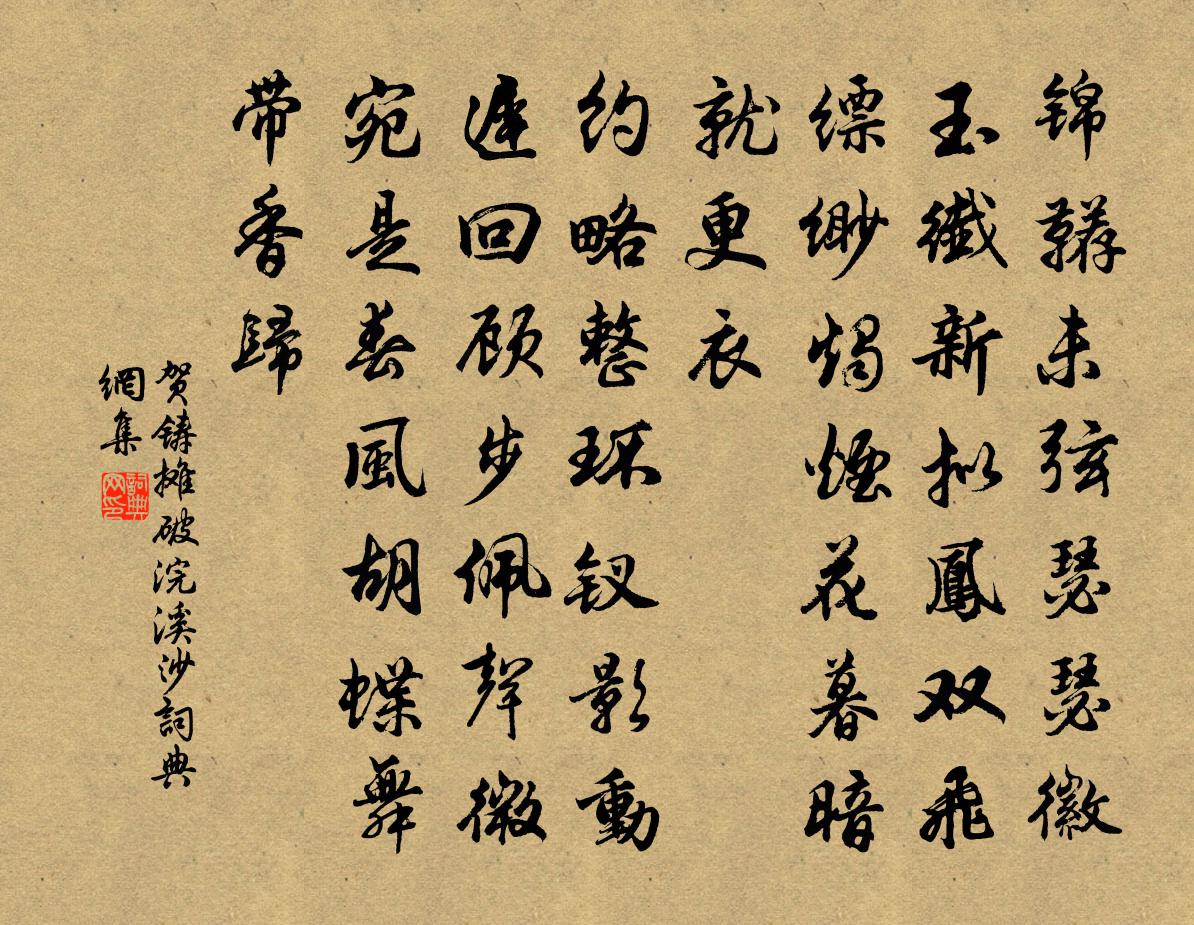 锦鞯朱弦瑟瑟徽
玉纖新拟鳳双飛
缥缈燭煙花暮暗
就更衣
约略整环钗影動
遲回顾步佩聲微
宛是春風胡蝶舞
带香歸
贺铸摊破浣溪沙詞典
網集
詞典
网印